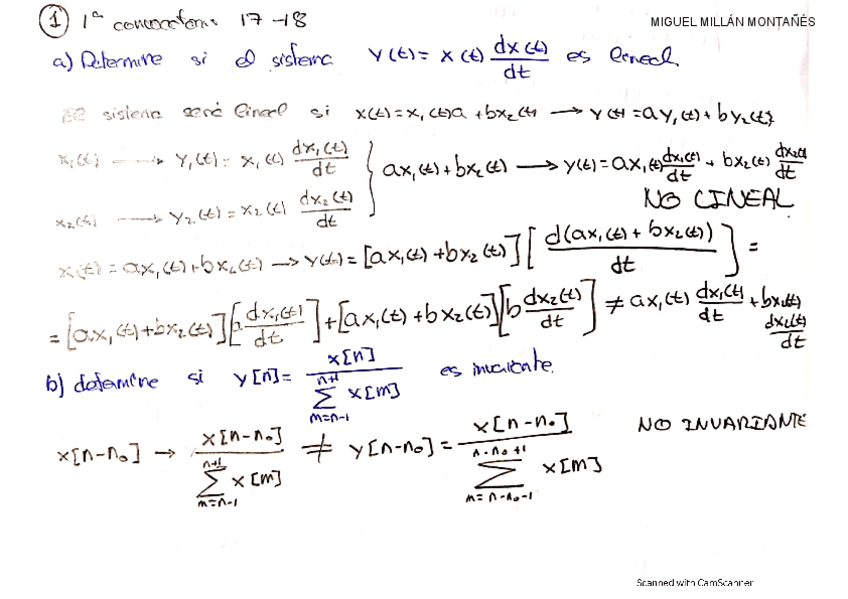 ① 1ª convocatoria 17-18
MIGUEL MILLÁN MONTAÑÉS
a) Determine si el sistema y(t) = x(t) dx(t)/dt es lineal.
El sistema será lineal si x(t) = x₁(t)a + bx₂(t) → y(t) = ay₁(t) + by₂(t)
x₁(t) → y₁(t) = x₁(t) dx₁(t)/dt } ax₁(t) + bx₂(t) → y(t) = ax₁(t) dx₁(t)/dt + bx₂(t) dx₂(t)/dt
x₂(t) → y₂(t) = x₂(t) dx₂(t)/dt
NO LINEAL
x(t) = ax₁(t) + bx₂(t) → y(t) = [ax₁(t) + bx₂(t)] [d(ax₁(t) + bx₂(t))/dt] =
= [ax₁(t) + bx₂(t)] [a dx₁(t)/dt] + [ax₁(t) + bx₂(t)] [b dx₂(t)/dt] ≠ ax₁(t) dx₁(t)/dt + bx₂(t) dx₂(t)/dt
b) determine si y[n] = x[n] / ∑_{m=n-1}^{n+1} x[m] es invariante.
x[n-n₀] → x[n-n₀] / ∑_{m=n-1}^{n+1} x[m] ≠ y[n-n₀] = x[n-n₀] / ∑_{m=n-n₀-1}^{n-n₀+1} x[m] NO INVARIANTE
Scanned with CamScanner